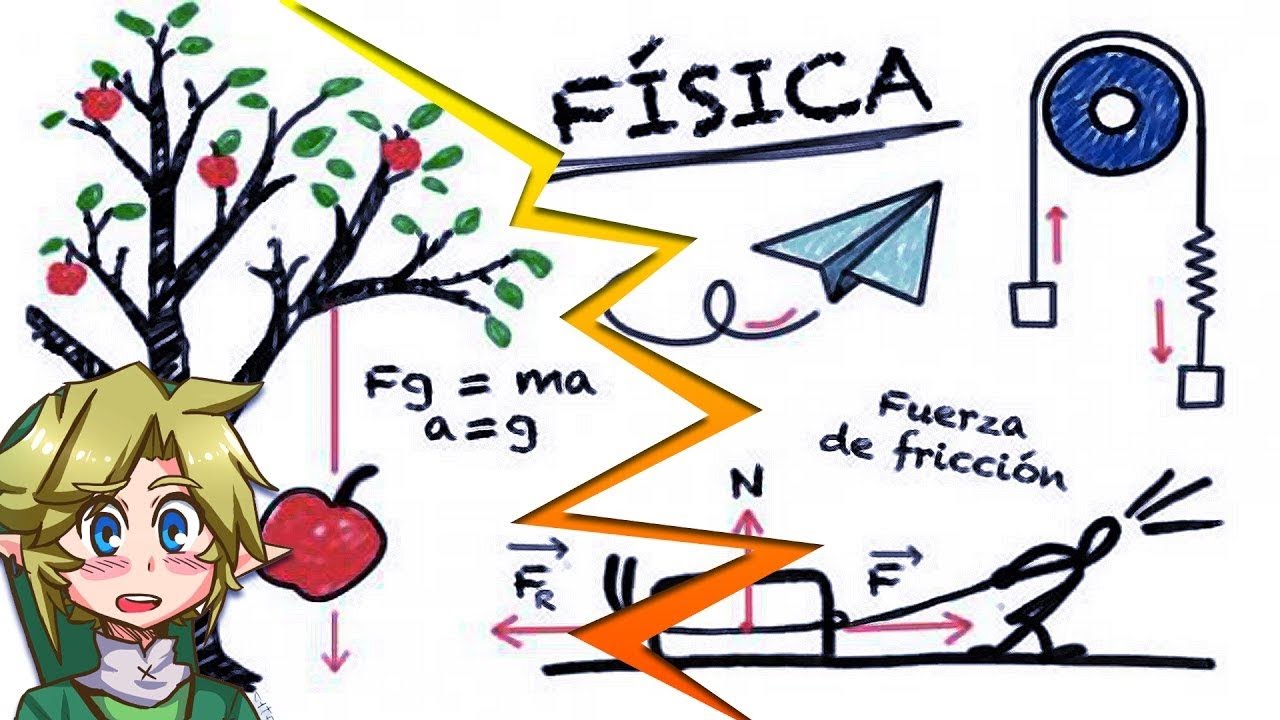 FÍSICA
Fg = ma
a = g
Fuerza
de fricción
N
F
R
F